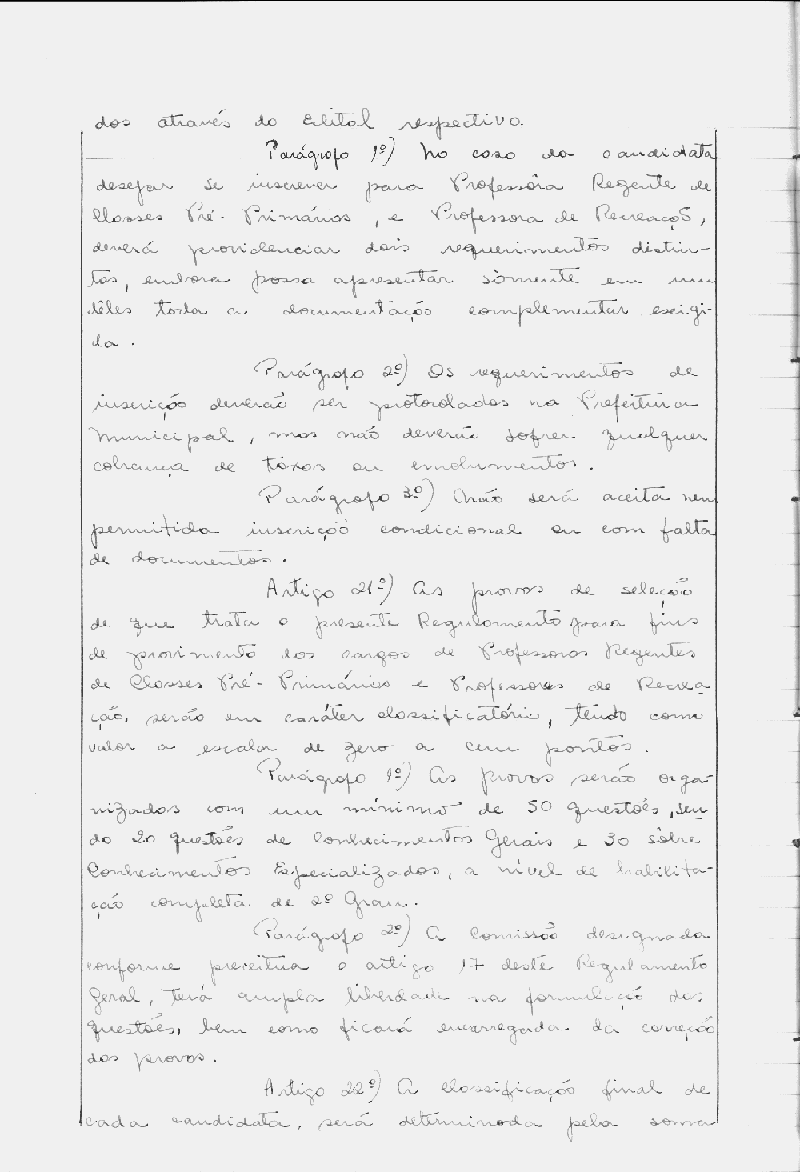 dos através do Edital respectivo.
Parágrafo 1º) No caso da candidata
desejar se inscrever para Professôra Regente de
Classes Pré-Primários, e Professora de Recreação,
deverá providenciar dois requerimentos distin-
tos, embora possa apresentar sòmente em um
dêles toda a documentação complementar exigi-
da.
Parágrafo 2º) Os requerimentos de
inscrição deverão ser protocolados na Prefeitura
Municipal, mas não deverão sofrer qualquer
cobrança de taxas ou emolumentos.
Parágrafo 3º) Não será aceita nem
permitida inscrição condicional ou com falta
de documentos.
Artigo 21º) As provas de seleção
de que trata o presente Regulamento para fins
de provimento dos cargos de Professoras Regentes
de Classes Pré-Primários e Professores de Recrea-
ção, serão em caráter classificatório, tendo como
valor a escala de zero a cem pontos.
Parágrafo 1º) As provas serão orga-
nizadas com um mínimo de 50 questões, sen
do 20 questões de Conhecimentos Gerais e 30 sôbre
Conhecimentos Especializados, a nível de habilita-
ção completa de 2º Grau.
Parágrafo 2º) A Comissão designada
conforme preceitua o artigo 17 deste Regulamento
Geral, terá ampla liberdade na formulação das
questões, bem como ficará encarregada da correção
das provas.
Artigo 22º) A classificação final de
cada candidata, será determinada pela soma